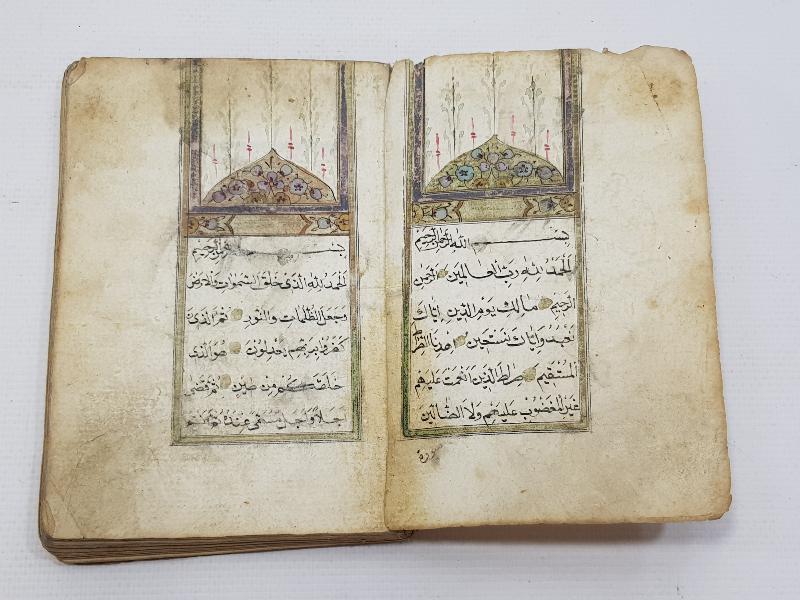 بسم الله الرحمن الرحيم
الحمد لله رب العالمين الرحمن
الرحيم مالك يوم الدين اياك
نعبد واياك نستعين اهدنا الصراط
المستقيم صراط الذين انعمت عليهم
غير المغضوب عليهم ولا الضالين
بسم الرحمن الرحيم
الحمد لله الذى خلق السموات والارض
وجعل الظلمات والنور ثم الذى
كفروا بربهم يعدلون هو الذى
خلقكم من طين ثم قضى
اجلا واجل مسمى عنده ثم